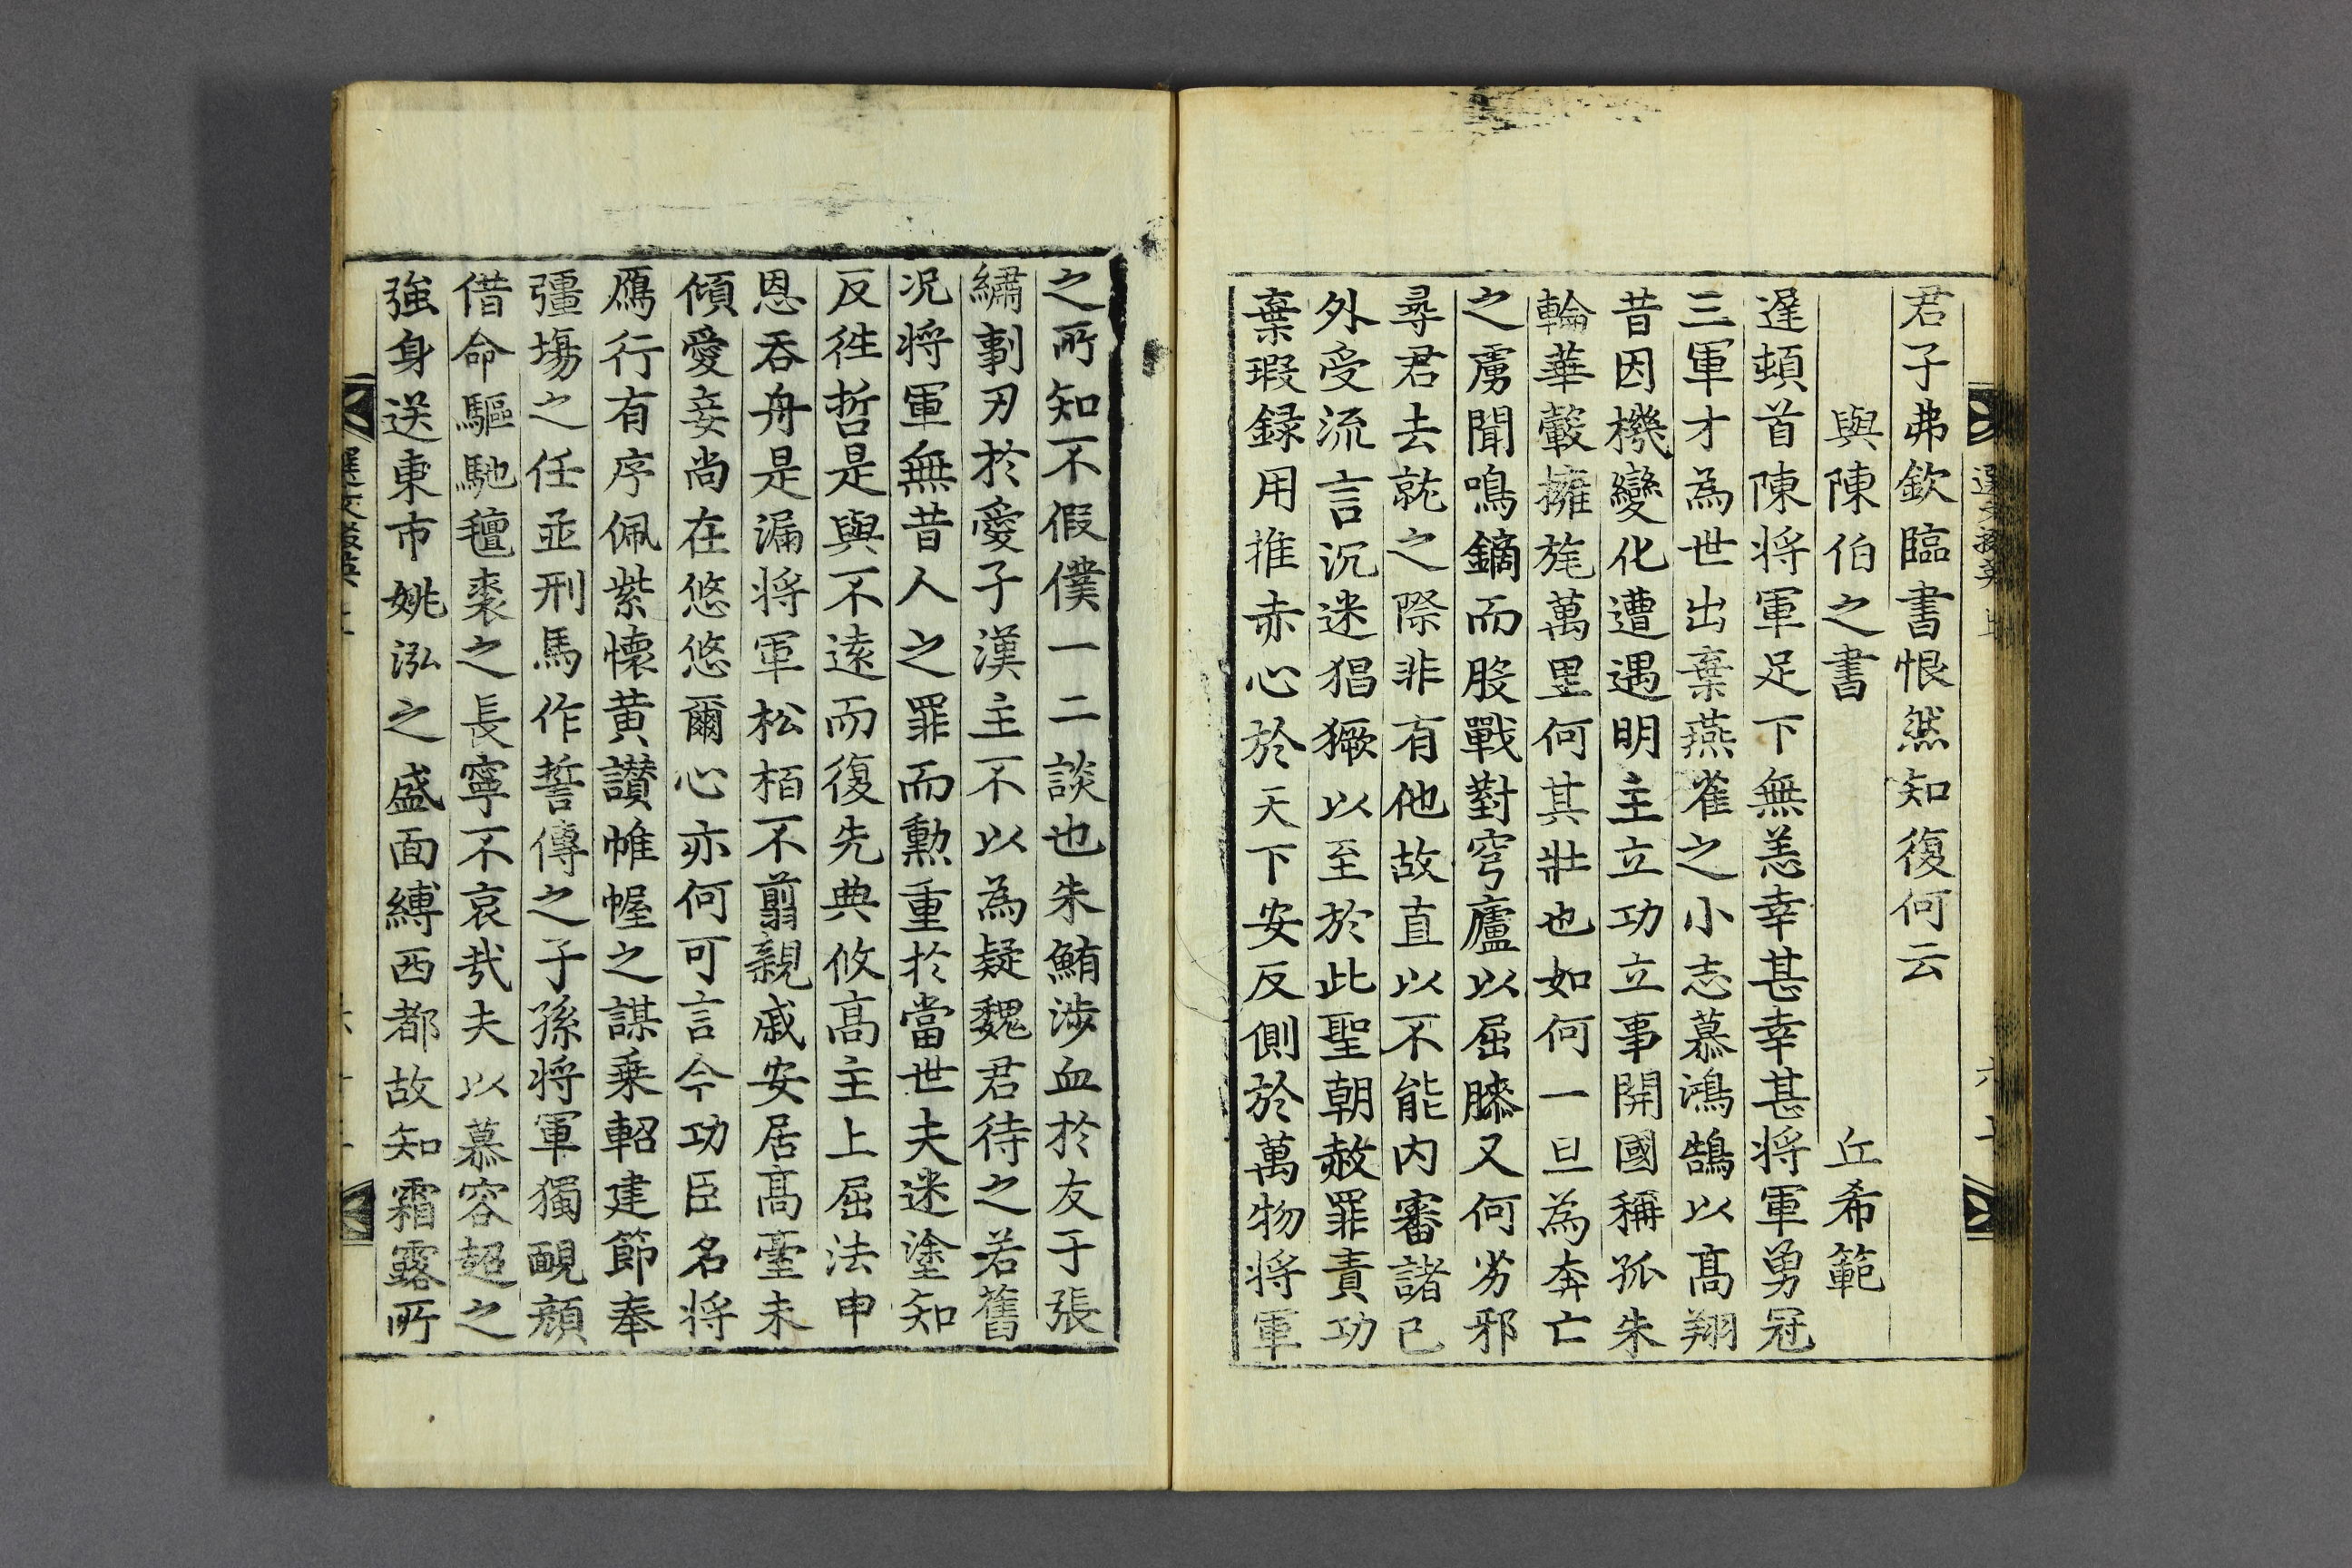 君子弗欽臨書恨然知復何云
與陳伯之書 丘希範
遅頓首陳将軍足下無恙幸甚幸甚将軍勇冠
三軍才為世出棄燕雀之小志慕鴻鵠以髙翔
昔因機變化遭遇明主立功立事開國稱孤朱
輪華轂擁旄萬里何其壯也如何一旦為奔亡
之虜聞鳴鏑而股戰對穹廬以屈膝又何劣邪
尋君去就之際非有他故直以不能内審諸己
外受流言沉迷猖獗以至於此聖朝赦罪責功
棄瑕録用推赤心於天下安反側於萬物将軍
之所知不假僕一二談也朱鮪涉血於友于張
繡剚刃於愛子漢主不以為疑魏君待之若舊
况将軍無昔人之罪而勲重於當世夫迷塗知
反徃哲是與不逺而復先典攸髙主上屈法申
恩吞舟是漏将軍松栢不翦親戚安居髙臺未
傾愛妾尚在悠悠爾心亦何可言今功臣名将
鴈行有序佩紫懷黄讃帷幄之謀乗軺建節奉
彊埸之任並刑馬作誓傳之子孫将軍獨靦顔
借命驅馳氊裘之長寧不哀哉夫以慕容超之
強身送東市姚泓之盛面縛西都故知霜露所